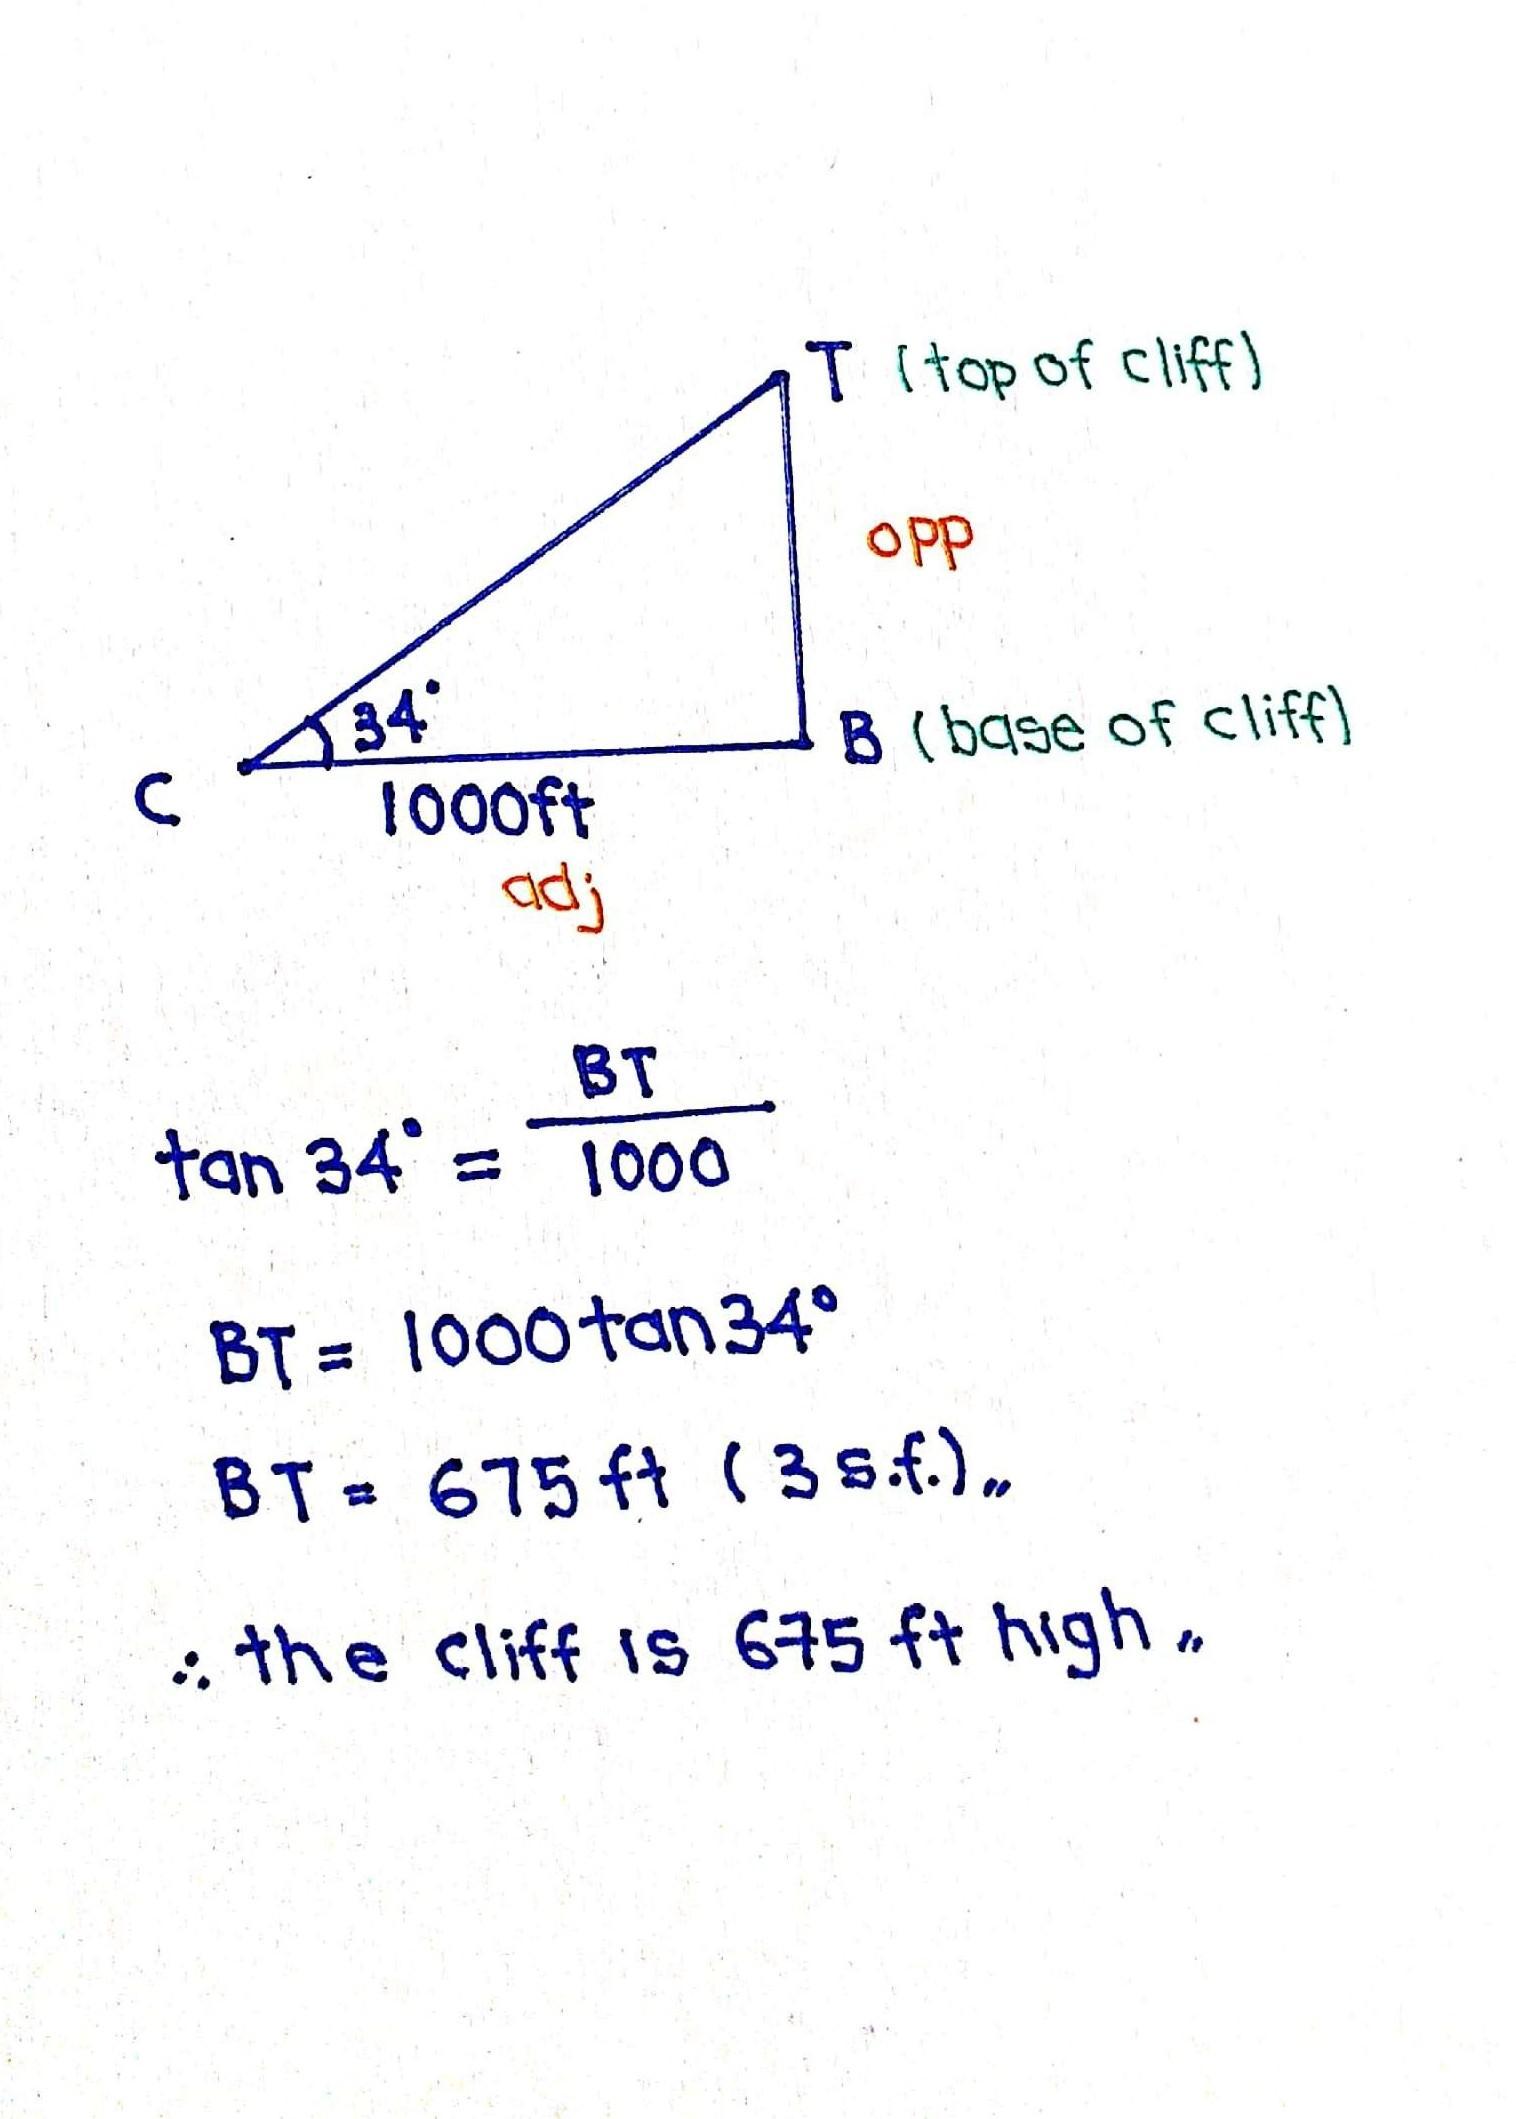 T (top of cliff)
opp
34°
B (base of cliff)
C
1000ft
adj
BT
tan 34° = 1000
BT = 1000 tan 34°
BT = 675 ft (3 s.f.),,
∴ the cliff is 675 ft high ,,